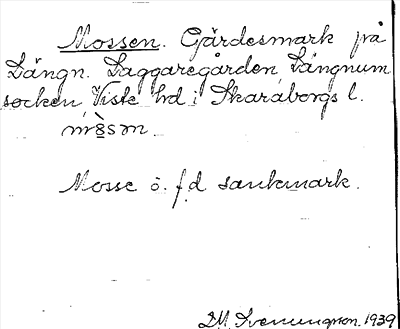 Mossen. Gärdesmark på
Längn. Laggaregården, Längnum
socken, Viste hd i Skaraborgs l.
mosm.
Mosse o. f.d sankmark.
Svenungsson. 1939